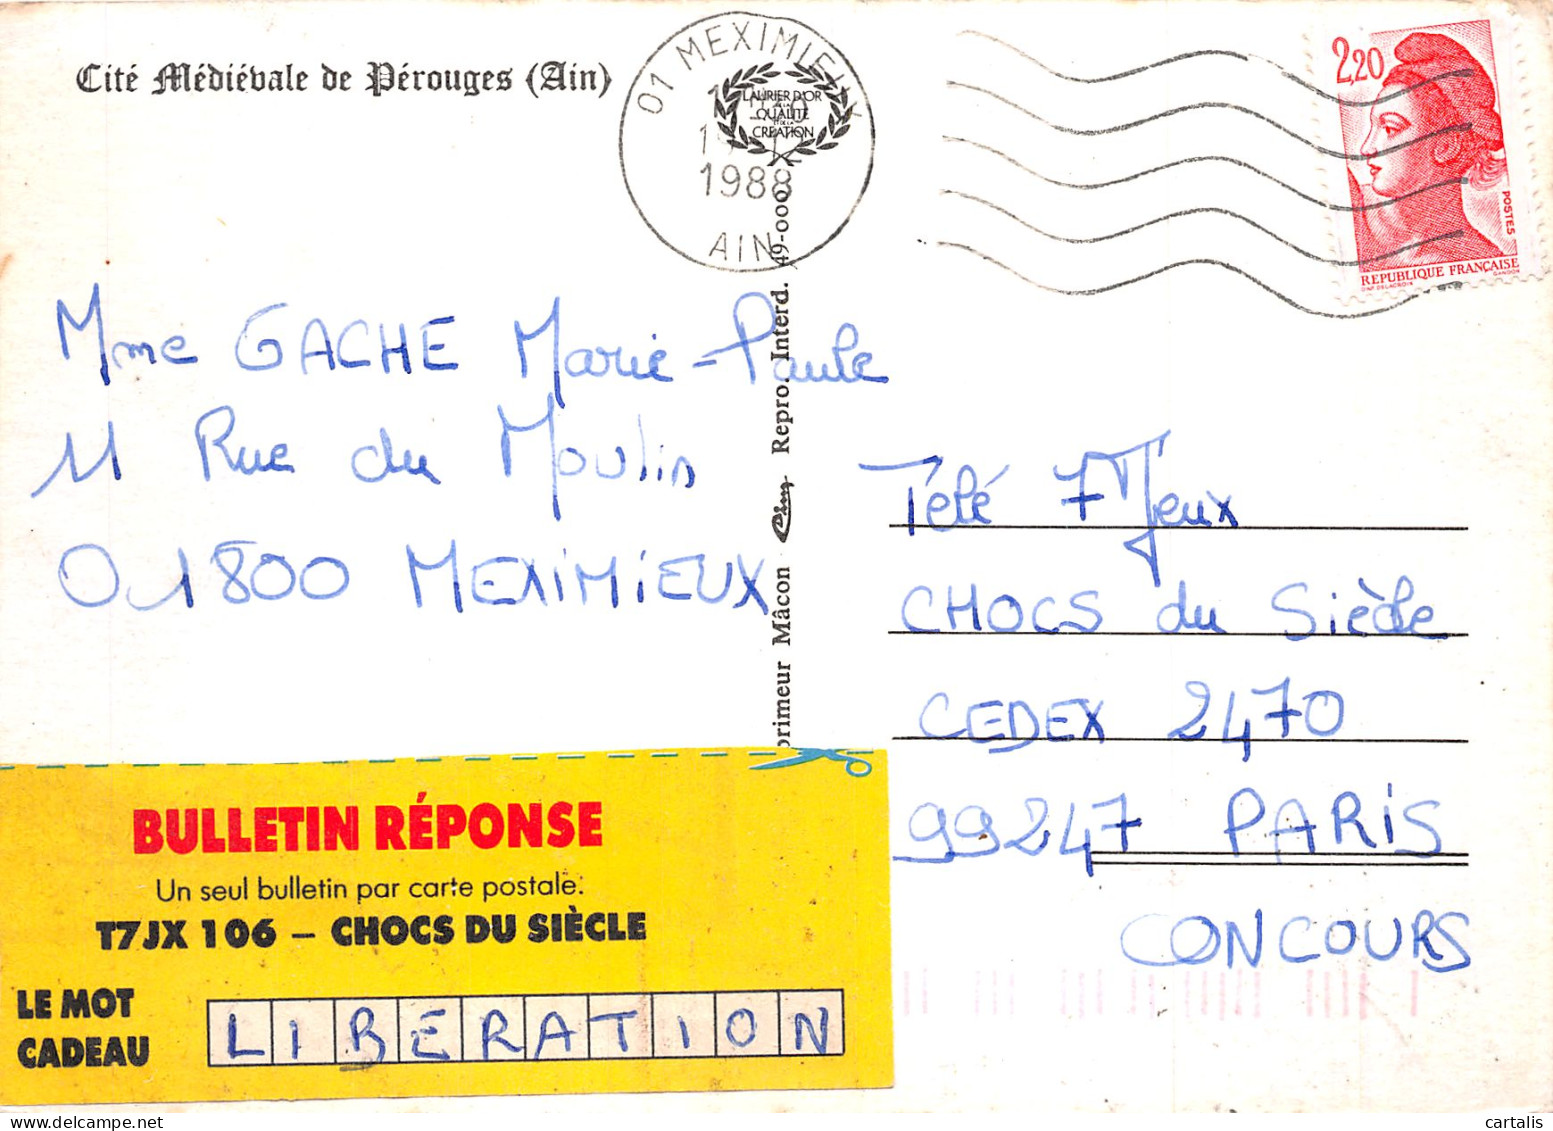 Cité Médiévale de Pérouges (Ain)
01 MEXIMIEUX
1988
AIN
LAURIER D'OR
DE LA
QUALITÉ
ET DE LA
CRÉATION
2,20
POSTES
REPUBLIQUE FRANÇAISE
D'AP. DELACROIX GANDON
Mme GACHE Marie-Paule
11 Rue du Moulin
01800 MEXIMIEUX
primeur Mâcon Cim Repro. Interd. 49-000
Télé 7 Jeux
CHOCS du Siècle
CEDEX 2470
99247 PARIS
CONCOURS
BULLETIN RÉPONSE
Un seul bulletin par carte postale.
T7JX 106 – CHOCS DU SIÈCLE
LE MOT
CADEAU
LIBERATION
cartalis